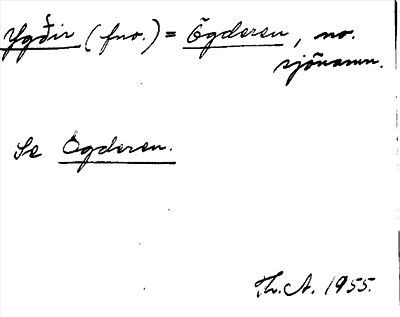 Ygðir (fno.) = Õgderen, no.
sjönamn.
Se Ögderen.
Th. A. 1955.